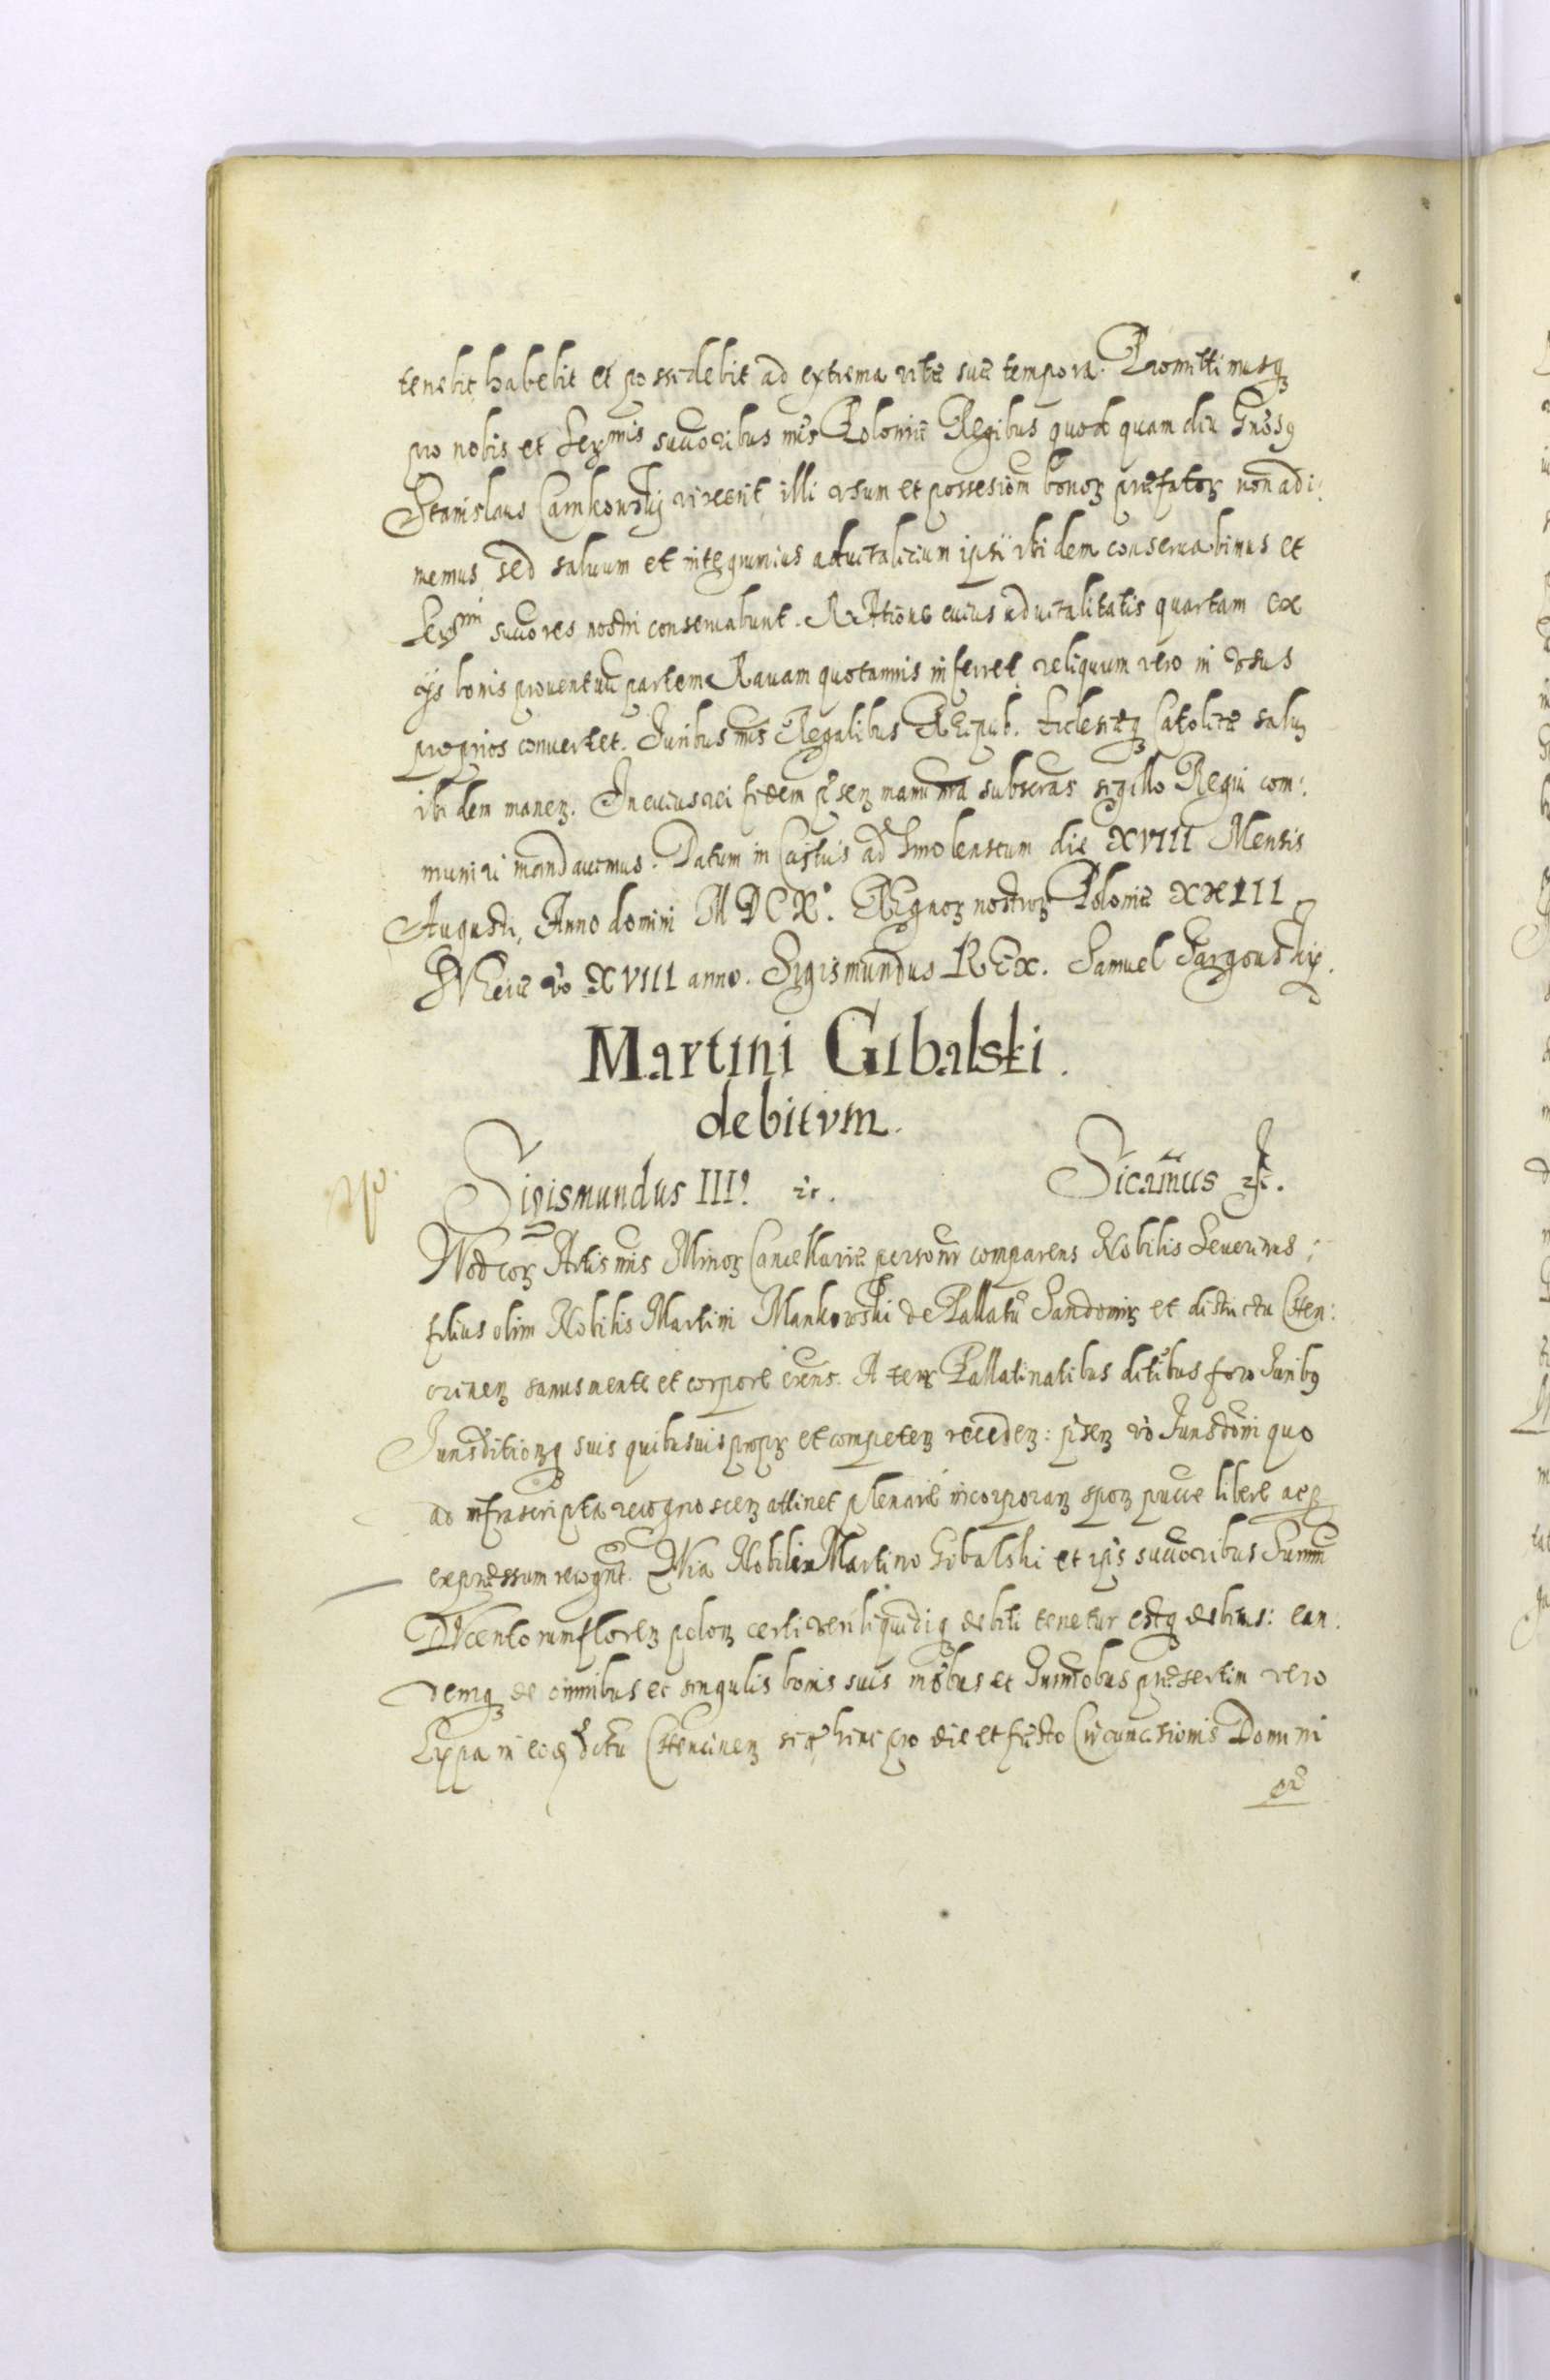 tenebit habebit et possidebit ad extrema vitæ suæ tempora. Promittimusq3
pro nobis et Ser^mis succoribus nris Poloniæ Regibus quod quam diu Gnosus
Stanislaus Carnkowskij vixerit, illi vsum et possesiom bonor3 præfator3 non adi:
memus, sed saluum et integrum ius aduitalicium ipsi ibidem conseruabimus et
Ser^mi succores nostri conseruabunt. RAtione cuius aduitalitatis quartam ex
ijs bonis prouentuu partem Rauam quotannis inferret, reliquum vero in vsus
proprios conuertet. Juribus nris Regalibus REipub. Eclesiæq3 Catolicæ saluis
ibidem manen. In cuius rei fidem pnsen manu nra subscras sigillo Regni com:
muniri mandauimus. Datum in Castris ad Smolenscum die XVIII Mensis
Augusti, Anno domini MDCX°. REgnor3 nostror3 Poloniæ XXIII
SVeciæ vo XVIII anno. Sigismundus REX. Samuel Targowskij.
Martini Gibalski.
debitvm.
Sigismundus III9 &c. Sicamus &c.
QVod cor3 Actis nris Minor3 Cancellariæ personr comparens Nobilis Seuerinus,
filius olim Nobilis Martini Mankowski de Pallatu Sandomir et districtu Chen:
cinen sanus mente et corpore exens. A terr Pallatinatibus ditibus foro Juribus
Jurisditionq3 suis quibusuis propr et competen receden: pnsen vo Jurisdoni quo
ad infrascripta recognoscen attinet plenarie incorporan spon pure libere acq3
expressum recognt. QVia Nobili Martino Gibalski et ips succoribus Summ
DVcentorum floren polon certi veri liquidiq3 debiti tenetur estq3 debitus: ean:
demq3 de omnibus et singulis bonis suis mobus et Immobus præsertim vero
Lippa in eod dctu Chencinen sitæ hinc pro die et festo Circumcisionis Domini